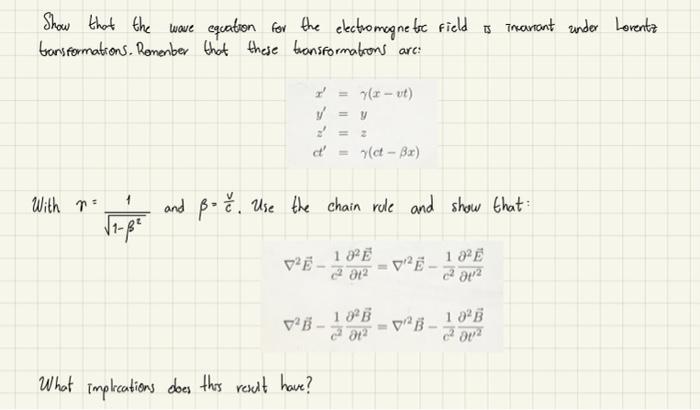 Show that the wave equation for the electromagnetic field is invariant under Lorentz
transformations. Remember that these transformations are:
x' = γ(x − vt)
y' = y
z' = z
ct' = γ(ct − βx)
With γ = 1/√(1-β²) and β = v/c. Use the chain rule and show that:
∇²E⃗ − 1/c² ∂²E⃗/∂t² = ∇'²E⃗ − 1/c² ∂²E⃗/∂t'²
∇²B⃗ − 1/c² ∂²B⃗/∂t² = ∇'²B⃗ − 1/c² ∂²B⃗/∂t'²
What implications does this result have?